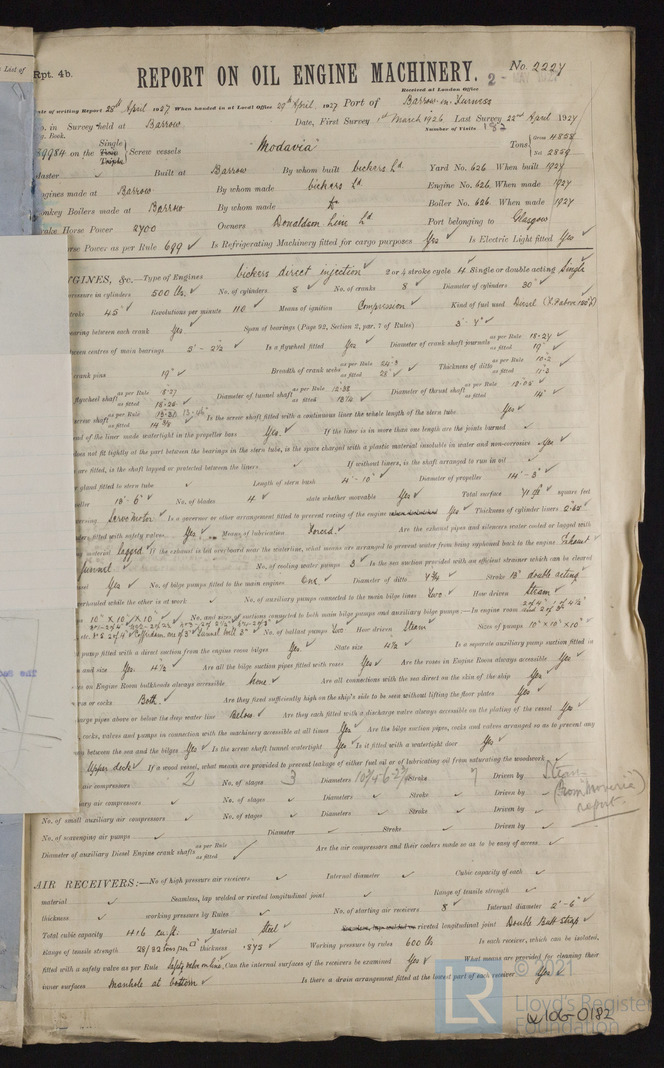 List of
Rpt. 4b.
REPORT ON OIL ENGINE MACHINERY.
No. 2224
Received at London Office
of writing Report 28th April 1927 When handed in at Local Office 29th April 1927 Port of Barrow-in-Furness
in Survey held at Barrow Date, First Survey 1st March 1926 Last Survey 22nd April 1927
Book. Number of Visits 182
39984 on the Single Twin Triple Screw vessels "Modavia" Tons Gross 4858 Net 2859
Master Built at Barrow By whom built Vickers Ld Yard No. 626 When built 1927
Engines made at Barrow By whom made Vickers Ld Engine No. 626 When made 1927
Donkey Boilers made at Barrow By whom made Do Boiler No. 626 When made 1927
Brake Horse Power 2700 Owners Donaldson Line Ld Port belonging to Glasgow
Horse Power as per Rule 699 Is Refrigerating Machinery fitted for cargo purposes Yes Is Electric Light fitted Yes
ENGINES, &c.—Type of Engines Vickers direct injection 2 or 4 stroke cycle 4 Single or double acting Single
pressure in cylinders 500 lbs. No. of cylinders 8 No. of cranks 8 Diameter of cylinders 30"
stroke 45" Revolutions per minute 110 Means of ignition Compression Kind of fuel used Diesel
bearing between each crank Yes Span of bearings (Page 92, Section 2, par. 7 of Rules) 3'-4"
between centres of main bearings 5'-2½ Is a flywheel fitted Yes Diameter of crank shaft journals as per Rule 18.27 as fitted 19"
crank pins 19" Breadth of crank webs as per Rule 24.3 as fitted 28" Thickness of ditto as per Rule 10.2 as fitted 11.2
flywheel shaft as per Rule 18.27 as fitted Diameter of tunnel shaft as per Rule 12.38 as fitted Diameter of thrust shaft as per Rule as fitted 14"
screw shaft as per Rule as fitted 14 3/8 Is the screw shaft fitted with a continuous liner the whole length of the stern tube Yes
end of the liner made watertight in the propeller boss Yes. If the liner is in more than one length are the joints burned
does not fit tightly at the part between the bearings in the stern tube, is the space charged with a plastic material insoluble in water and non-corrosive Yes
are fitted, is the shaft lapped or protected between the liners If without liners, is the shaft arranged to run in oil
gland fitted to stern tube Length of stern bush 4'-10" Diameter of propeller 14'-3"
propeller 13'-6" No. of blades 4 state whether moveable Yes Total surface 71 ft² square feet
Servo motor Is a governor or other arrangement fitted to prevent racing of the engine Yes Thickness of cylinder liners
fitted with safety valves Yes Means of lubrication Forced. Are the exhaust pipes and silencers water cooled or lagged with
material lagged If the exhaust is led overboard near the waterline, what means are arranged to prevent water from being syphoned back to the engine Exhaust
funnel No. of cooling water pumps 3 Is the sea suction provided with an efficient strainer which can be cleared
Yes No. of bilge pumps fitted to the main engines One Diameter of ditto 4¾ Stroke 13" double acting
overhauled while the other is at work No. of auxiliary pumps connected to the main bilge lines Two How driven Steam
10" X 10" X 10" No. and sizes of suctions connected to both main bilge pumps and auxiliary bilge pumps:—In engine room
Tunnel well 3" No. of ballast pumps Two How driven Steam Sizes of pumps 10" X 10" X 10"
pump fitted with a direct suction from the engine room bilges Yes State size 4½ Is a separate auxiliary pump suction fitted in
and size Yes. 4½ Are all the bilge suction pipes fitted with roses Yes Are the roses in Engine Room always accessible Yes
on Engine Room bulkheads always accessible None Are all connections with the sea direct on the skin of the ship Yes
or cocks Both. Are they fixed sufficiently high on the ship's side to be seen without lifting the floor plates Yes
discharge pipes above or below the deep water line Below Are they each fitted with a discharge valve always accessible on the plating of the vessel Yes
cocks, valves and pumps in connection with the machinery accessible at all times Yes Are the bilge suction pipes, cocks and valves arranged so as to prevent any
between the sea and the bilges Yes Is the screw shaft tunnel watertight Yes Is it fitted with a watertight door Yes
Upper deck If a wood vessel, what means are provided to prevent leakage of either fuel oil or of lubricating oil from saturating the woodwork
air compressors 2 No. of stages 3 Diameters Stroke 7 Driven by Steam
(from Moveria report.
air compressors No. of stages Diameters Stroke Driven by
No. of small auxiliary air compressors No. of stages Diameters Stroke Driven by
No. of scavenging air pumps Diameter Stroke Driven by
Diameter of auxiliary Diesel Engine crank shafts as per Rule as fitted Are the air compressors and their coolers made so as to be easy of access
AIR RECEIVERS:—No. of high pressure air receivers Internal diameter Cubic capacity of each
material Seamless, lap welded or riveted longitudinal joint Range of tensile strength
thickness working pressure by Rules No. of starting air receivers 8 Internal diameter 2'-6"
Total cubic capacity 416 cu.ft. Material Steel riveted longitudinal joint Double Butt strap
Range of tensile strength 28/32 tons per □" thickness .875 Working pressure by rules 600 lbs Is each receiver, which can be isolated,
fitted with a safety valve as per Rule Safety valve on line Can the internal surfaces of the receivers be examined Yes What means are provided for cleaning their
inner surfaces Manhole at bottom Is there a drain arrangement fitted at the lowest part of each receiver Yes
© 2021
LR
Lloyd's Register
Foundation
W106-0182